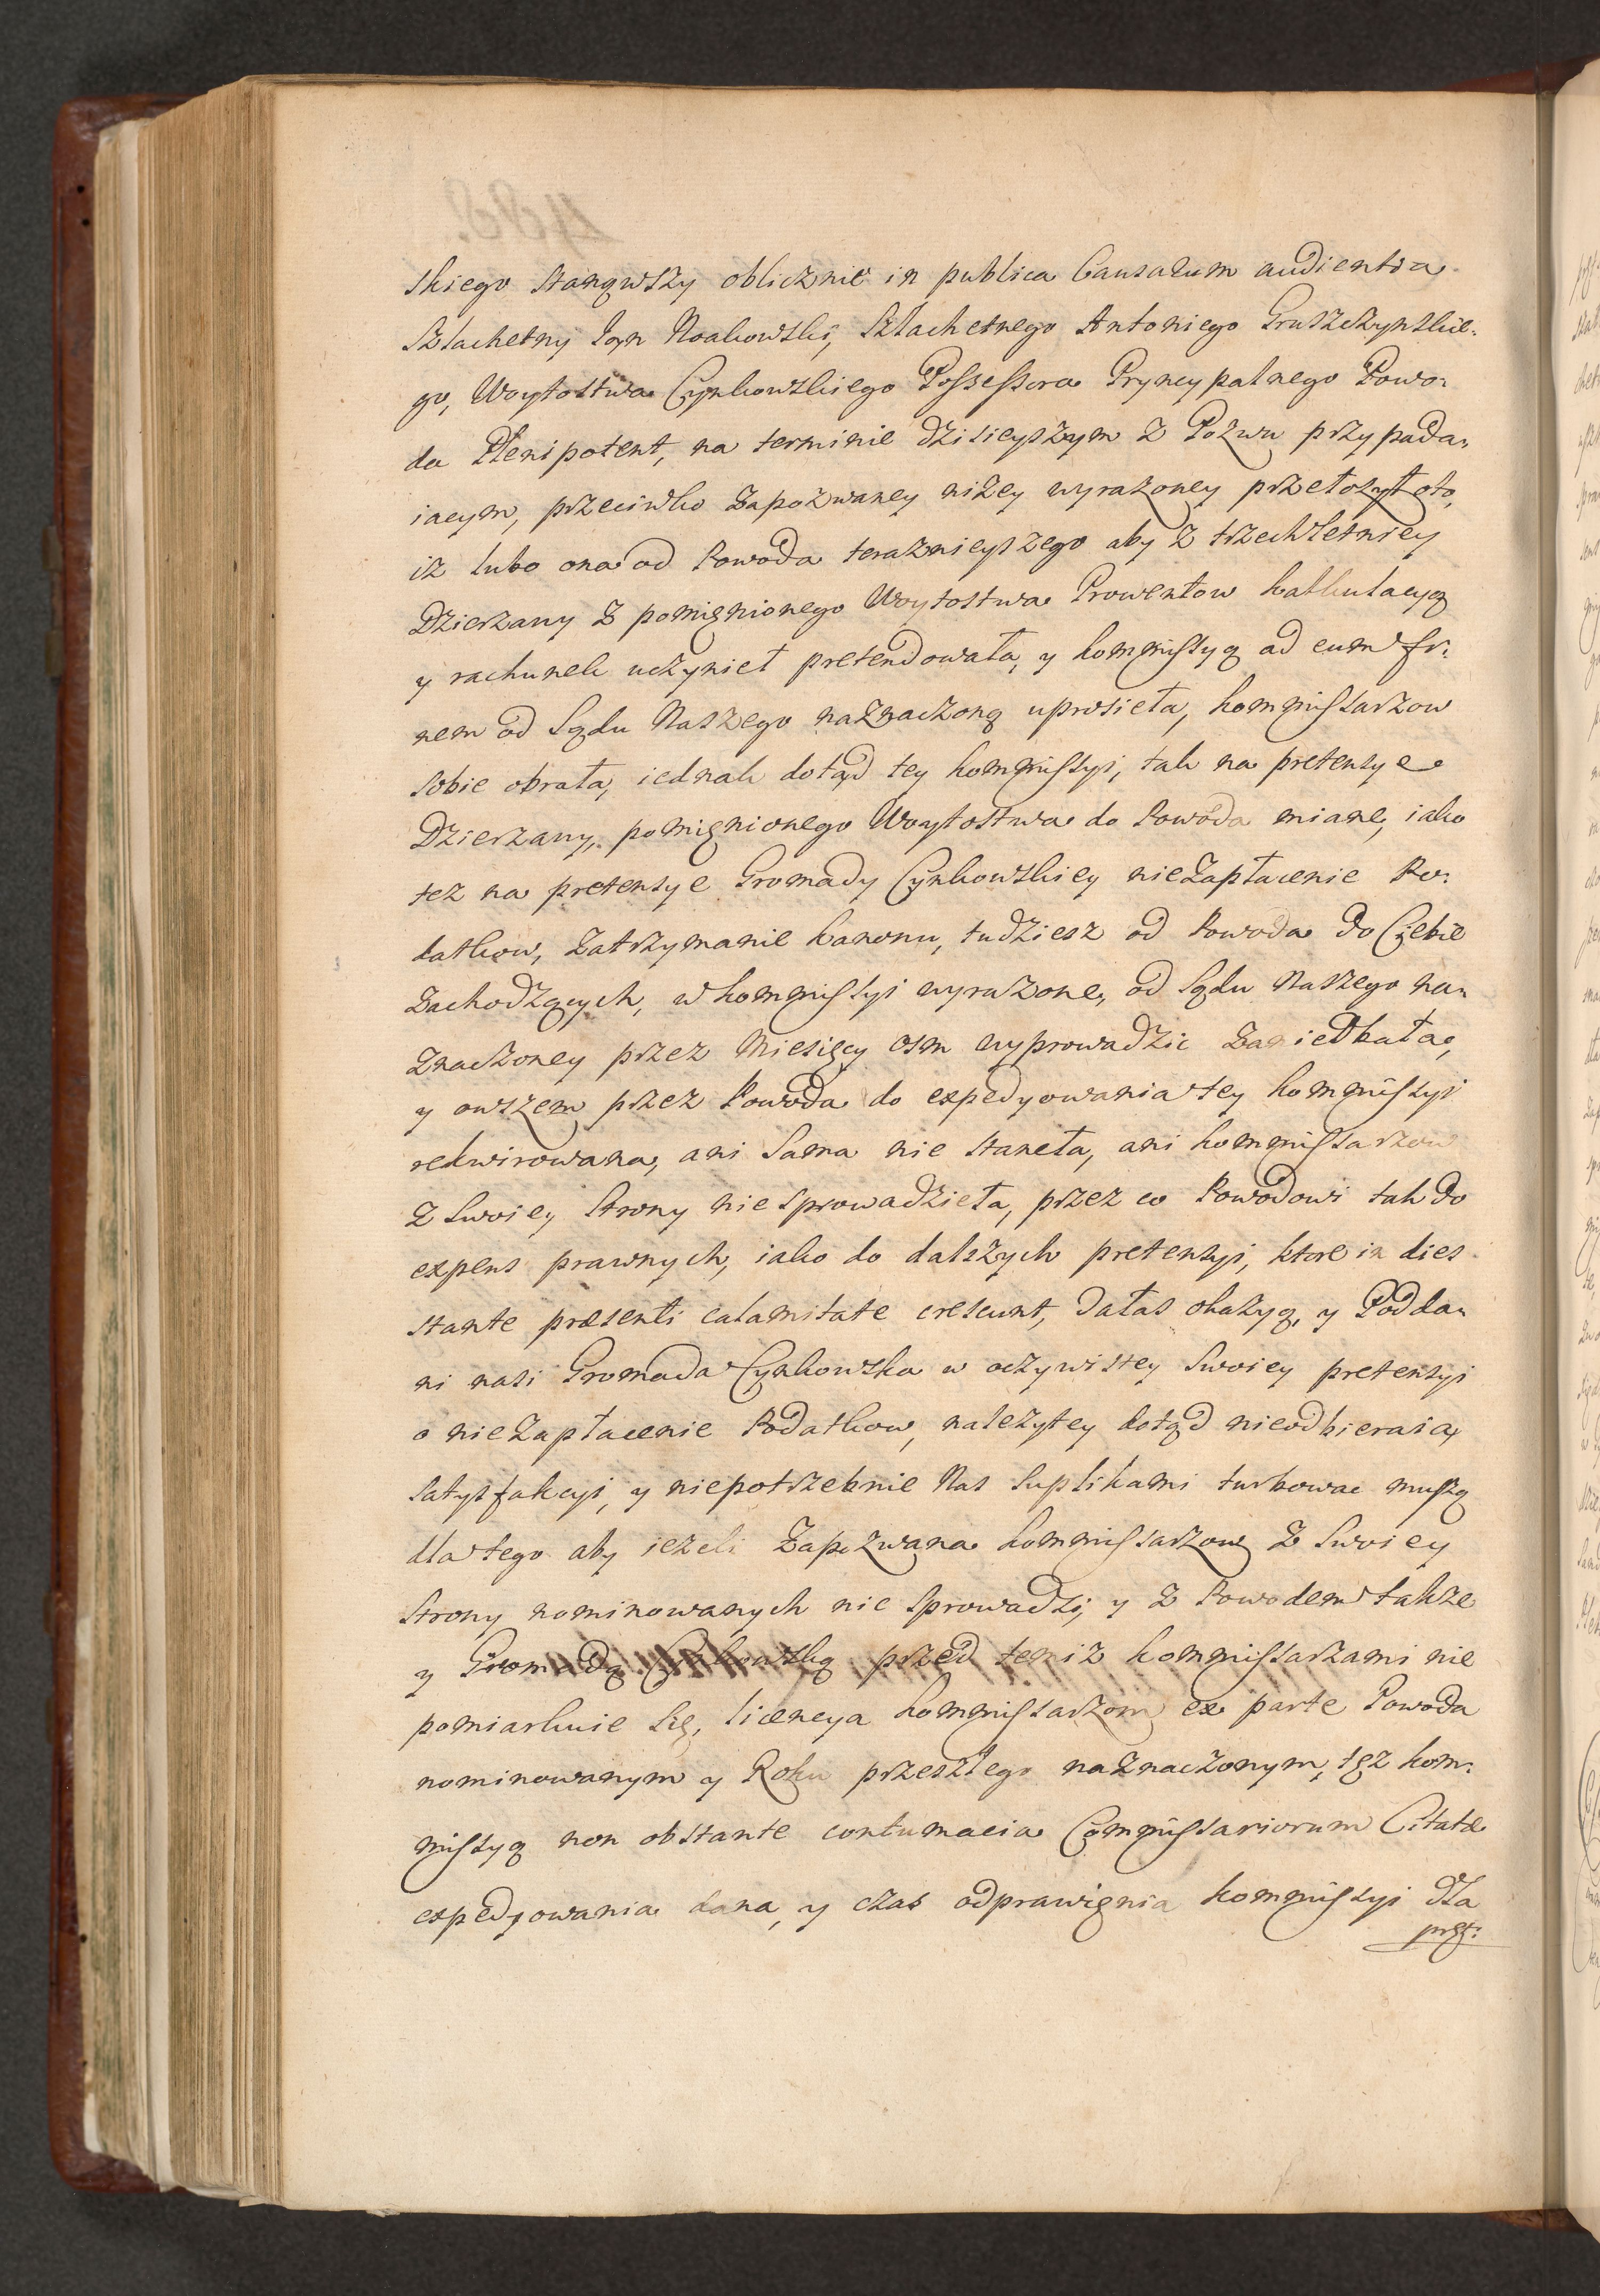 skiego stanąwszy oblicznie in publica Causarum audientia
Szlachetny Jan Noakowski, Szlachetnego Antoniego Gruszczynskie:
go, Woytostwa Cynkowskiego Possessora Pryncypalnego Powo:
da Plenipotent, na terminie dzisieyszym z Pozwu przypada:
iącym, przeciwko Zapozwaney niżey wyrażoney przełożył oto,
iż lubo ona od Powoda teraznieyszego aby z trzechletniey
Dzierżawy z pomięnionego Woytostwa Prowentow kalkulacyą
y rachunek uczynieł pretendowała, y kommissyą ad eum fi:
nem od Sądu Naszego naznaczoną uprosieła, kommissarzow
sobie obrała, iednak dotąd tey kommissyi, tak na pretensye
Dzierżawy, pomięnionego Woytostwa do Powoda miane, iako
też na pretensye Gromady Cynkowskiey niezapłacenie Po:
datkow, zatrzymanie kanonu, tudziesz od Powoda do Ciebie
zachodzących, w kommissyi wyrażone, od Sądu Naszego na:
znaczoney przez Miesięcy osm wyprowadzic zaniedbała,
y owszem przez Powoda do expedyowania tey kommissyi
rekwirowana, ani Sama nie staneła, ani kommissarzow
z Swoiey Strony niesprowadzieła, przez co Powodowi tak do
expens prawnych, iako do dalszych pretensyi, ktore in dies
stante præsenti calamitate crescunt, dałas okazyą, y Podda:
ni nasi Gromada Cynkowska w oczywistey Swoiey pretensyi
o niezapłacenie Podatkow, należytey dotąd nieodbieraią
satysfakcyi, y niepotrzebnie Nas Suplikami turbowac muszą
dla tego aby ieżeli Zapozwana kommissarzow z Swoiey
Strony nominowanych nie sprowadzi, y z Powodem także
y Gromadą Cynkowską przed temiż kommissarzami nie
pomiarkuie się, licencya kommissarzom ex parte Powoda
nominowanym y Roku przeszłego naznaczonym, tęż kom:
missyą non obstante contumacia Commissariorum Citatæ
expedyowania dana, y czas odprawięnia kommissyi dla